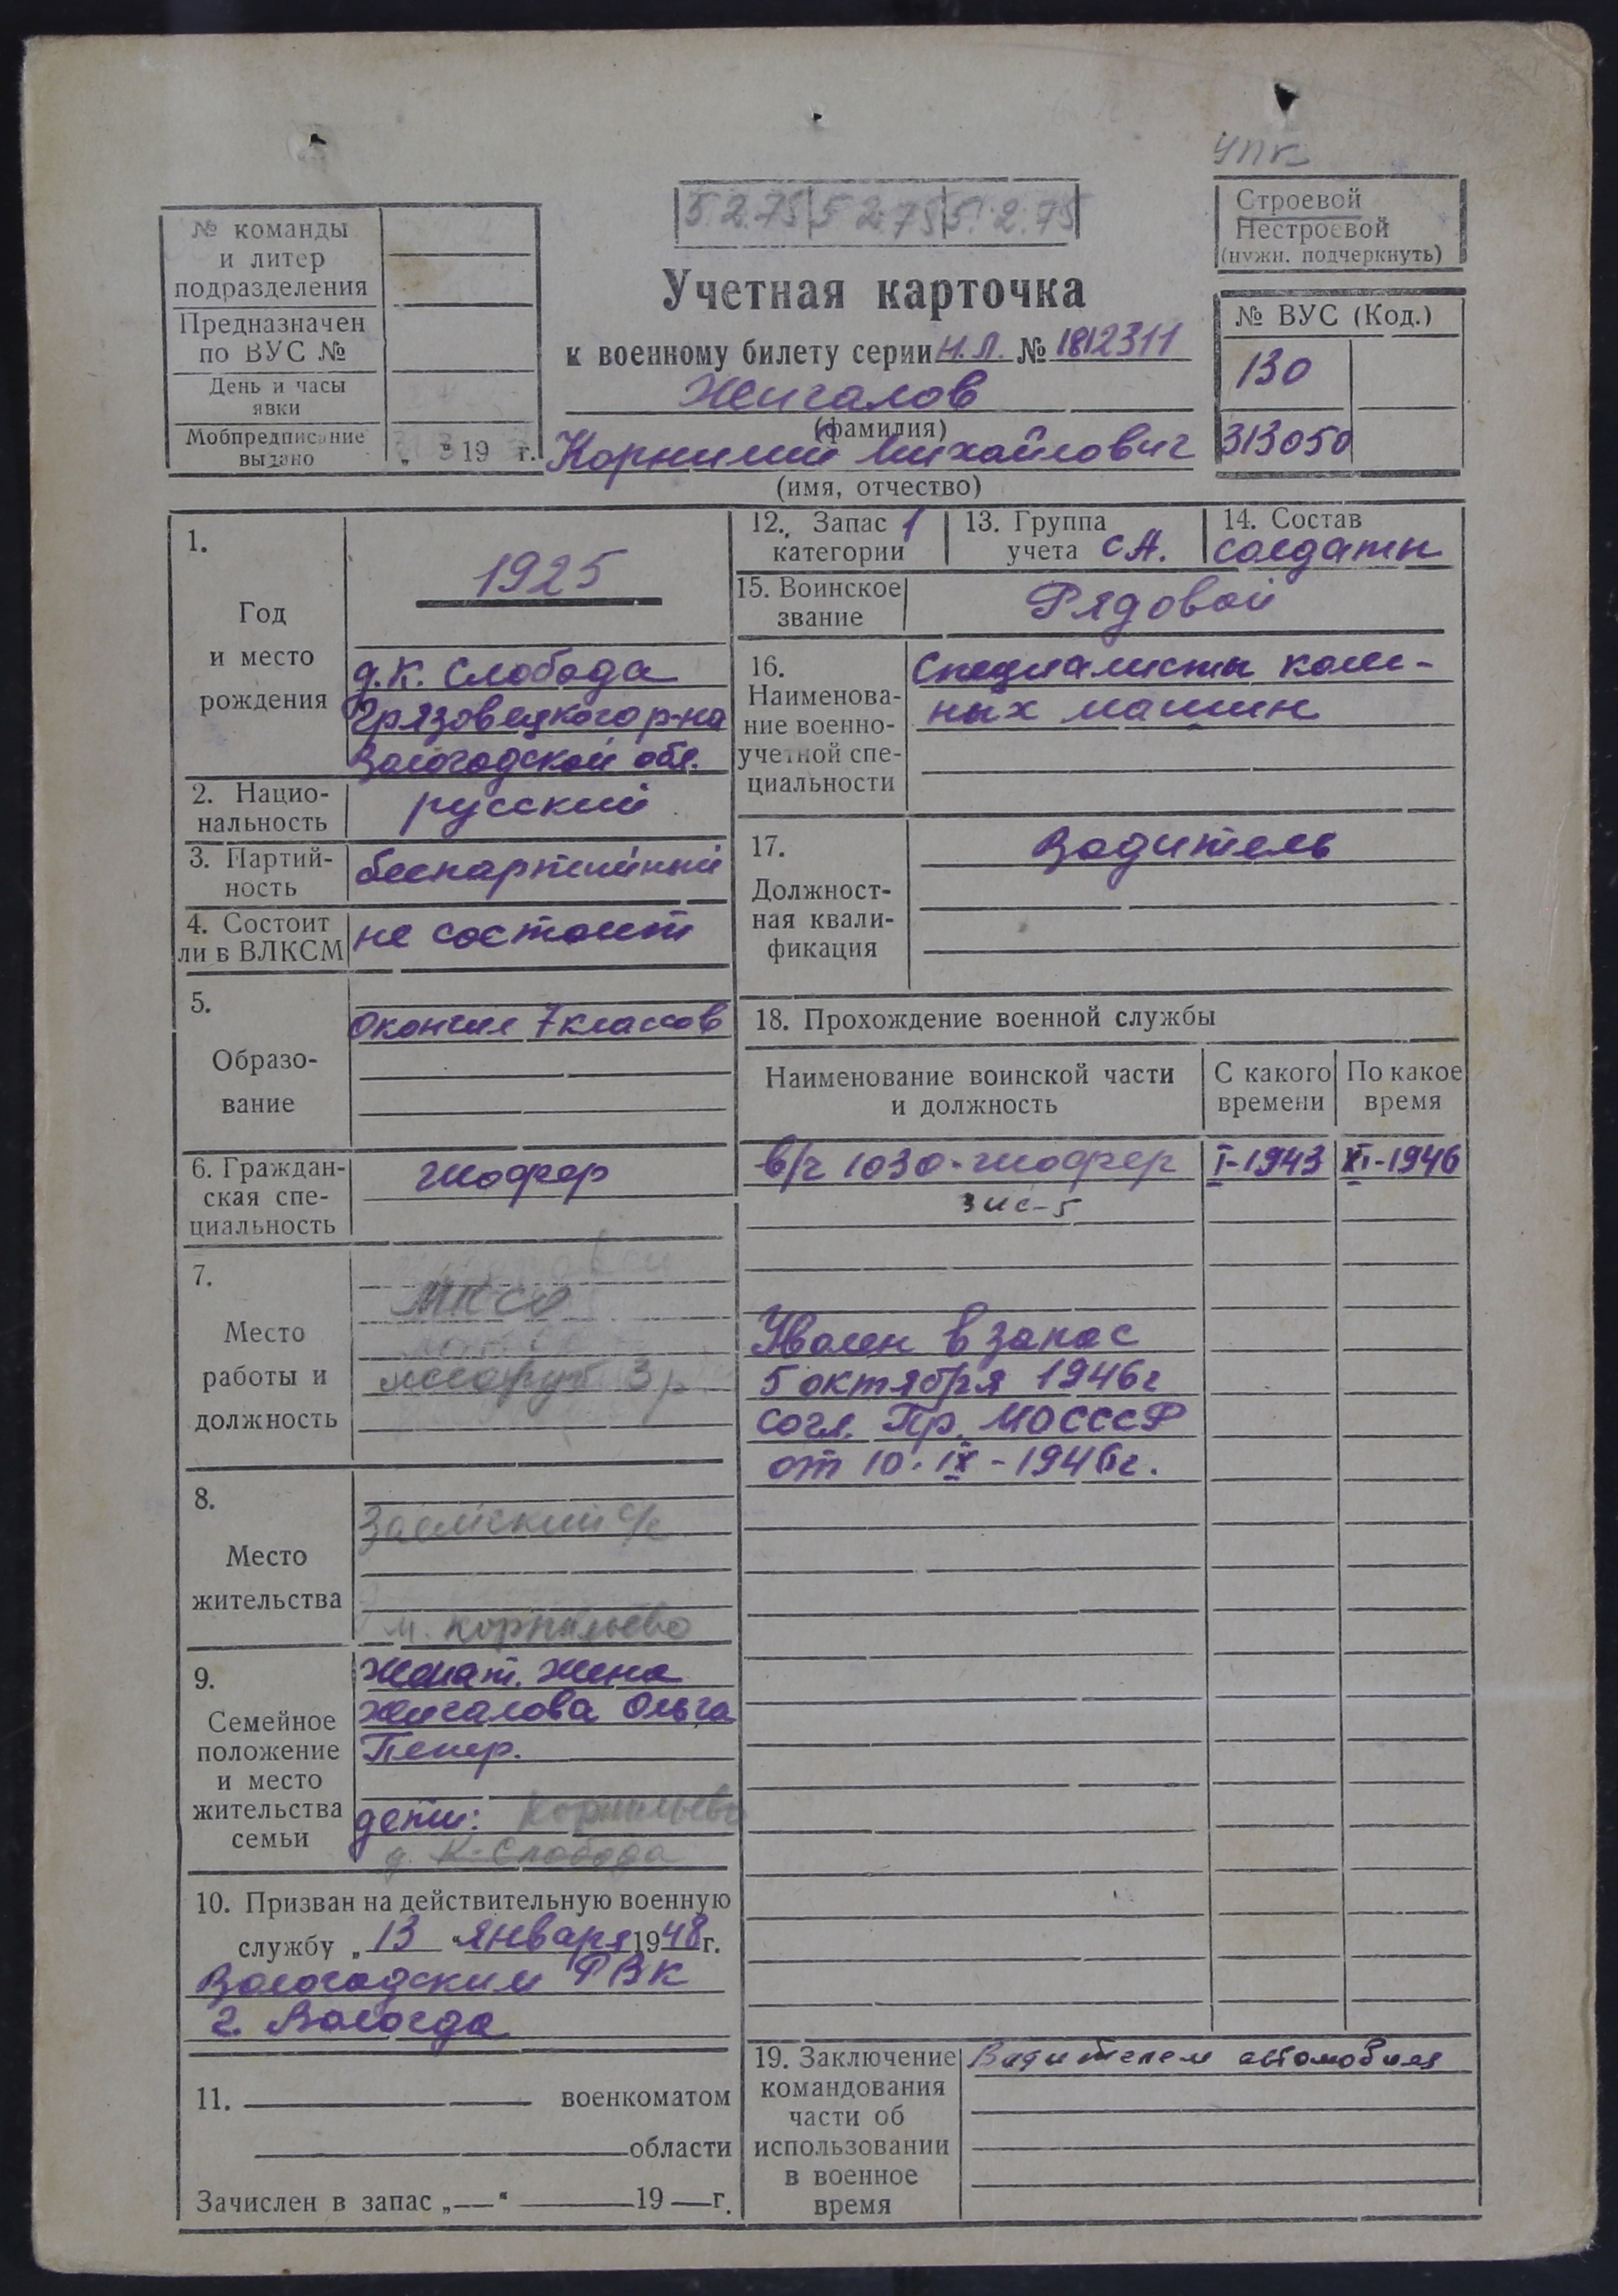 УПК
5.2.75 5 2.75 5.2.75
Строевой
Нестроевой
(нужн. подчеркнуть)
№ команды
и литер
подразделения
Предназначен
по ВУС №
День и часы
явки
Мобпредписание
выдано „ " 19 г.
Учетная карточка
к военному билету серии Н.Л. № 1812311
Жигалов
(фамилия)
Корнилий Михайлович
(имя, отчество)
№ ВУС (Код.)
130
313050
1.
Год
и место
рождения
1925
д.К. Слобода
Грязовецкого р-на
Вологодской обл.
2. Нацио-
нальность
русский
3. Партий-
ность
беспартийный
4. Состоит
ли в ВЛКСМ
не состоит
5.
Образо-
вание
Окончил 7 классов
6. Граждан-
ская спе-
циальность
Шофер
7.
Место
работы и
должность
МПСО
3р.
8.
Место
жительства
Заемский с/с
м. Корнильево
9.
Семейное
положение
и место
жительства
семьи
Женат. Жена
Жигалова Ольга
дети: Корнильево
д. К-Слобода
10. Призван на действительную военную
службу „13" января 1948 г.
Вологодским РВК
г. Вологда
11. военкоматом
области
Зачислен в запас „—" 19 — г.
12. Запас 1
категории
13. Группа
учета СА.
14. Состав
солдаты
15. Воинское
звание
Рядовой
16.
Наименова-
ние военно-
учетной спе-
циальности
Специалисты колес-
ных машин
17.
Должност-
ная квали-
фикация
Водитель
18. Прохождение военной службы
Наименование воинской части
и должность
С какого
времени
По какое
время
в/ч 1030 - шофер I-1943 XI-1946
ЗИС-5
Уволен в запас
5 октября 1946г
согл. Пр. МО СССР
от 10. IX - 1946г.
19. Заключение
командования
части об
использовании
в военное
время
Водителем автомобиля